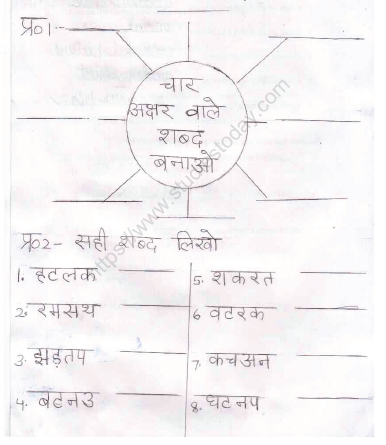 प्र०1-
चार
अक्षर वाले
शब्द
बनाओ
https://www.studiestoday.com
प्र०2- सही शब्द लिखो
1. हटलक
5. शकरत
2. रमसथ
6 वटरक
3. झड़तप
7. कचअन
4. बटनउ
8. घटनप